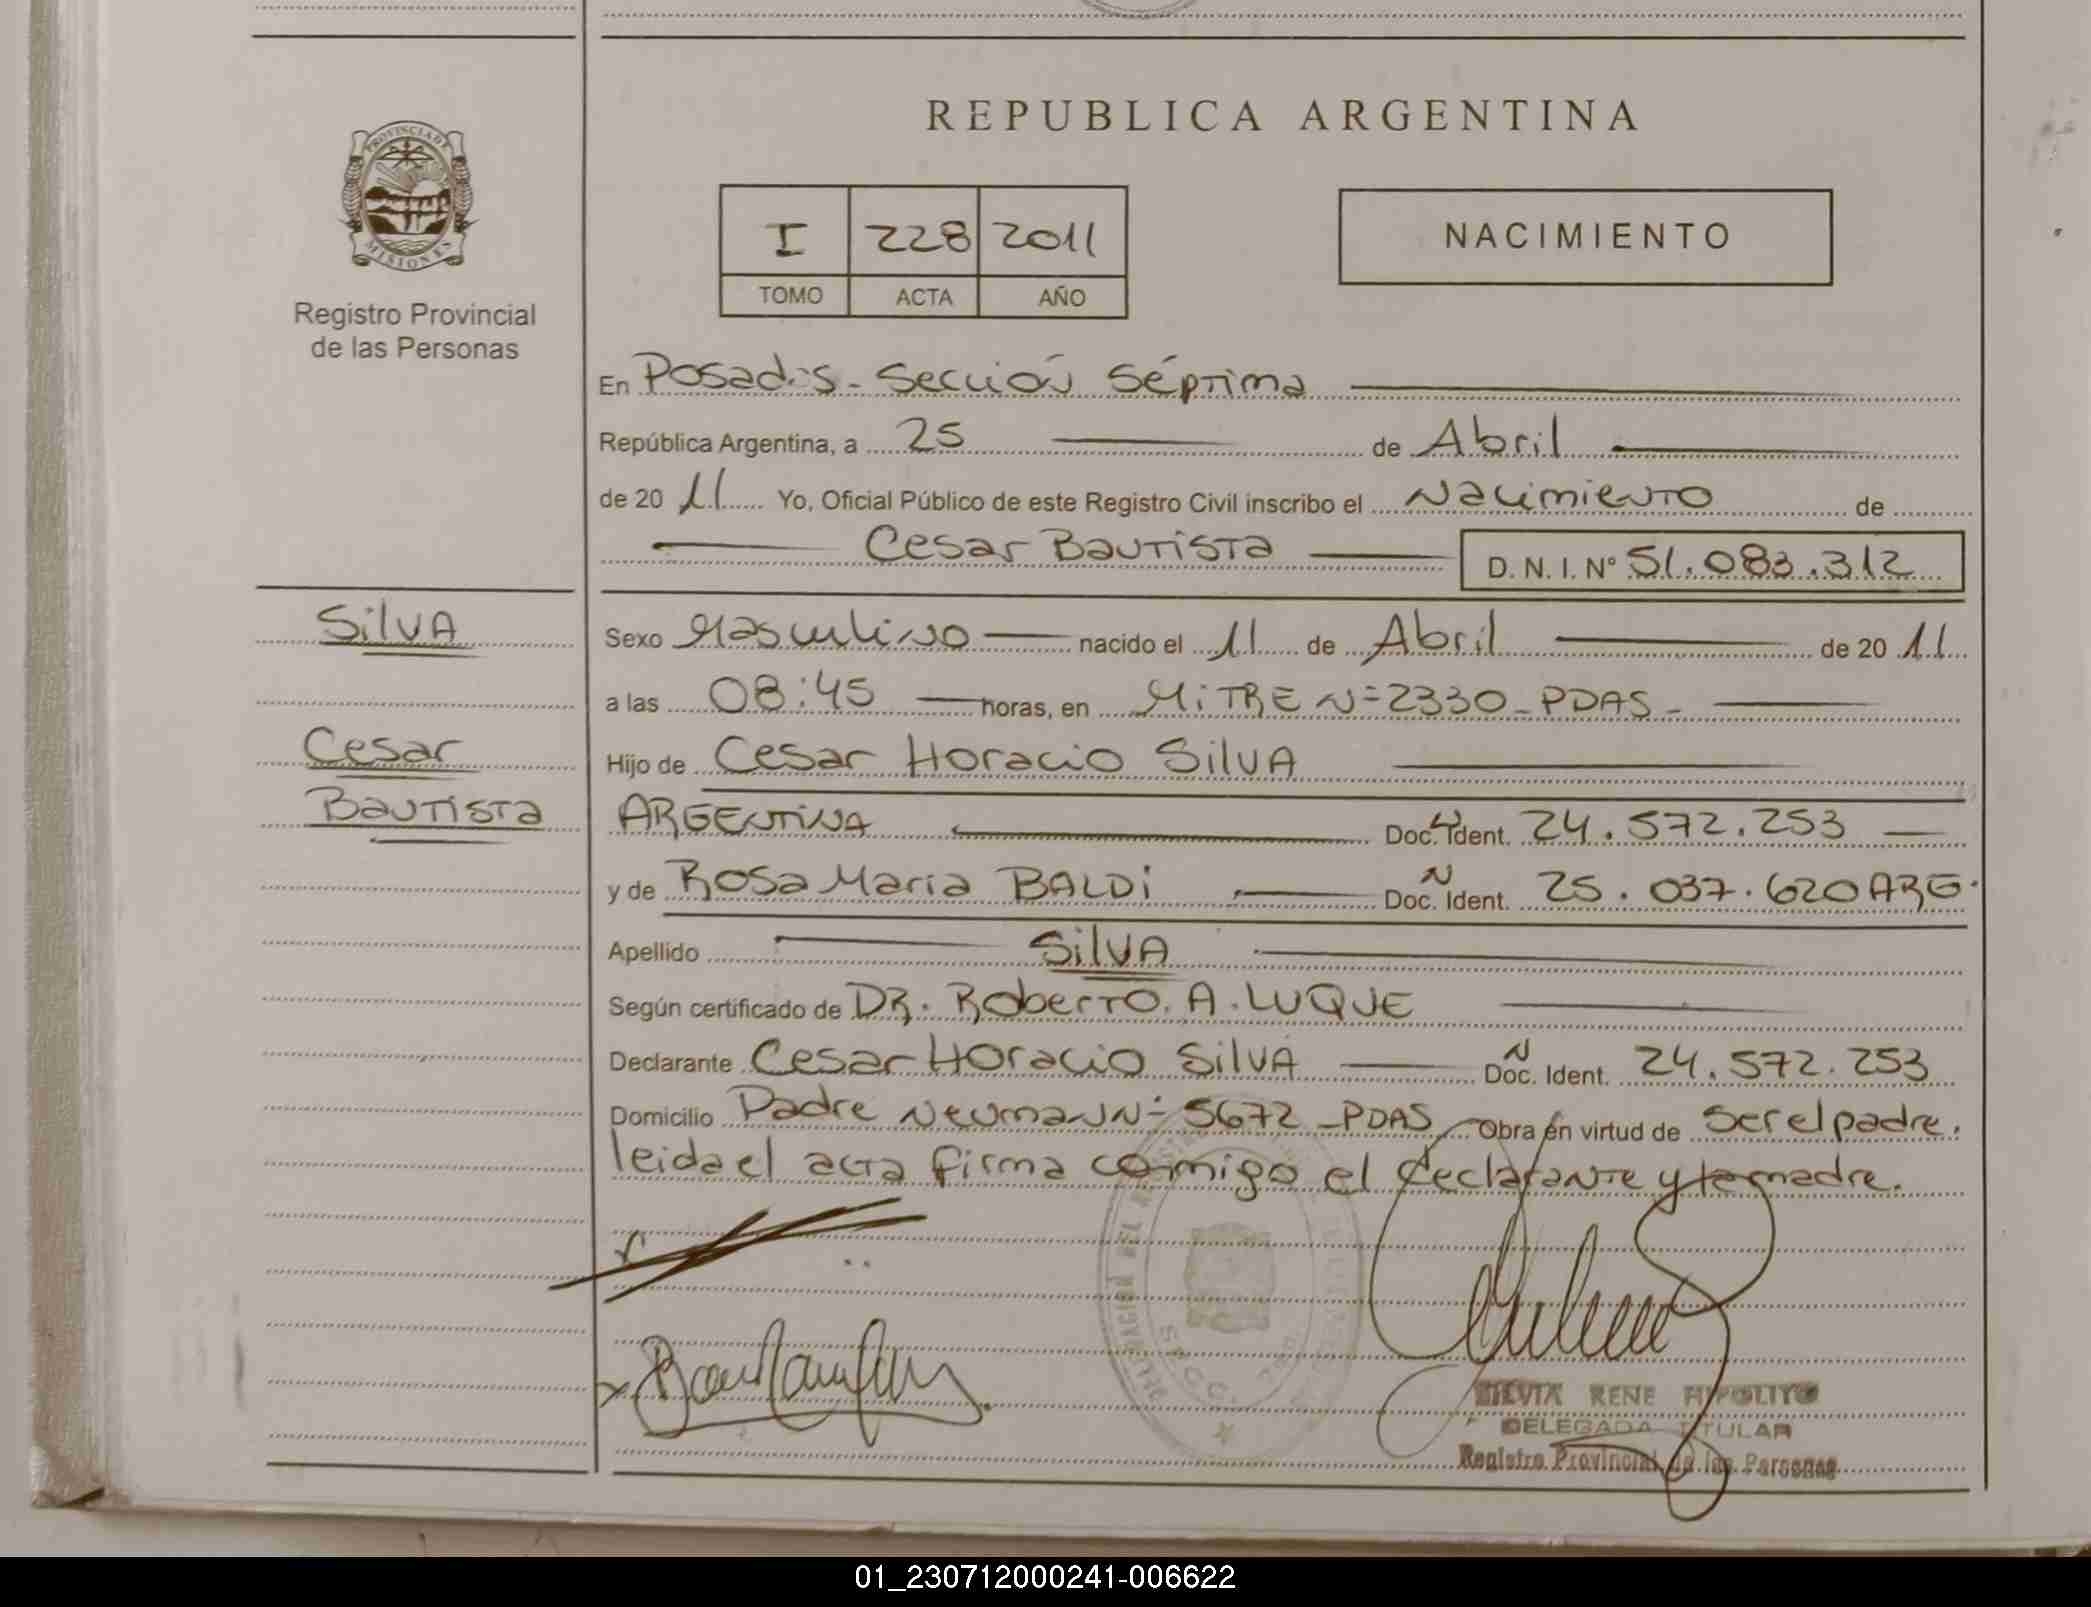 PROVINCIA DE
MISIONES
Registro Provincial
de las Personas
REPUBLICA ARGENTINA
I 228 2011
TOMO ACTA AÑO
NACIMIENTO
En Posadas - Sección Séptima
República Argentina, a 25 de Abril
de 20 11 Yo, Oficial Público de este Registro Civil inscribo el Nacimiento de
Cesar Bautista D. N. I. N° 51.083.312
SILVA
Cesar
Bautista
Sexo Masculino nacido el 11 de Abril de 20 11
a las 08:45 horas, en MITRE N=2330 - PDAS -
Hijo de Cesar Horacio SILVA
ARGENTINA Doc. Ident. 24.572.253
y de Rosa Maria BALDI N Doc. Ident. 25.037.620 ARG.
Apellido SILVA
Según certificado de DR. Roberto. A. LUQUE
Declarante Cesar Horacio SILVA N Doc. Ident. 24.572.253
Domicilio Padre Neumann N- 5672 - PDAS Obra en virtud de ser el padre.
leida el acta firma comigo el declarante y la madre.
SILVIA RENE HIPOLITO
DELEGADA TITULAR
Registro Provincial de las Personas
01_230712000241-006622